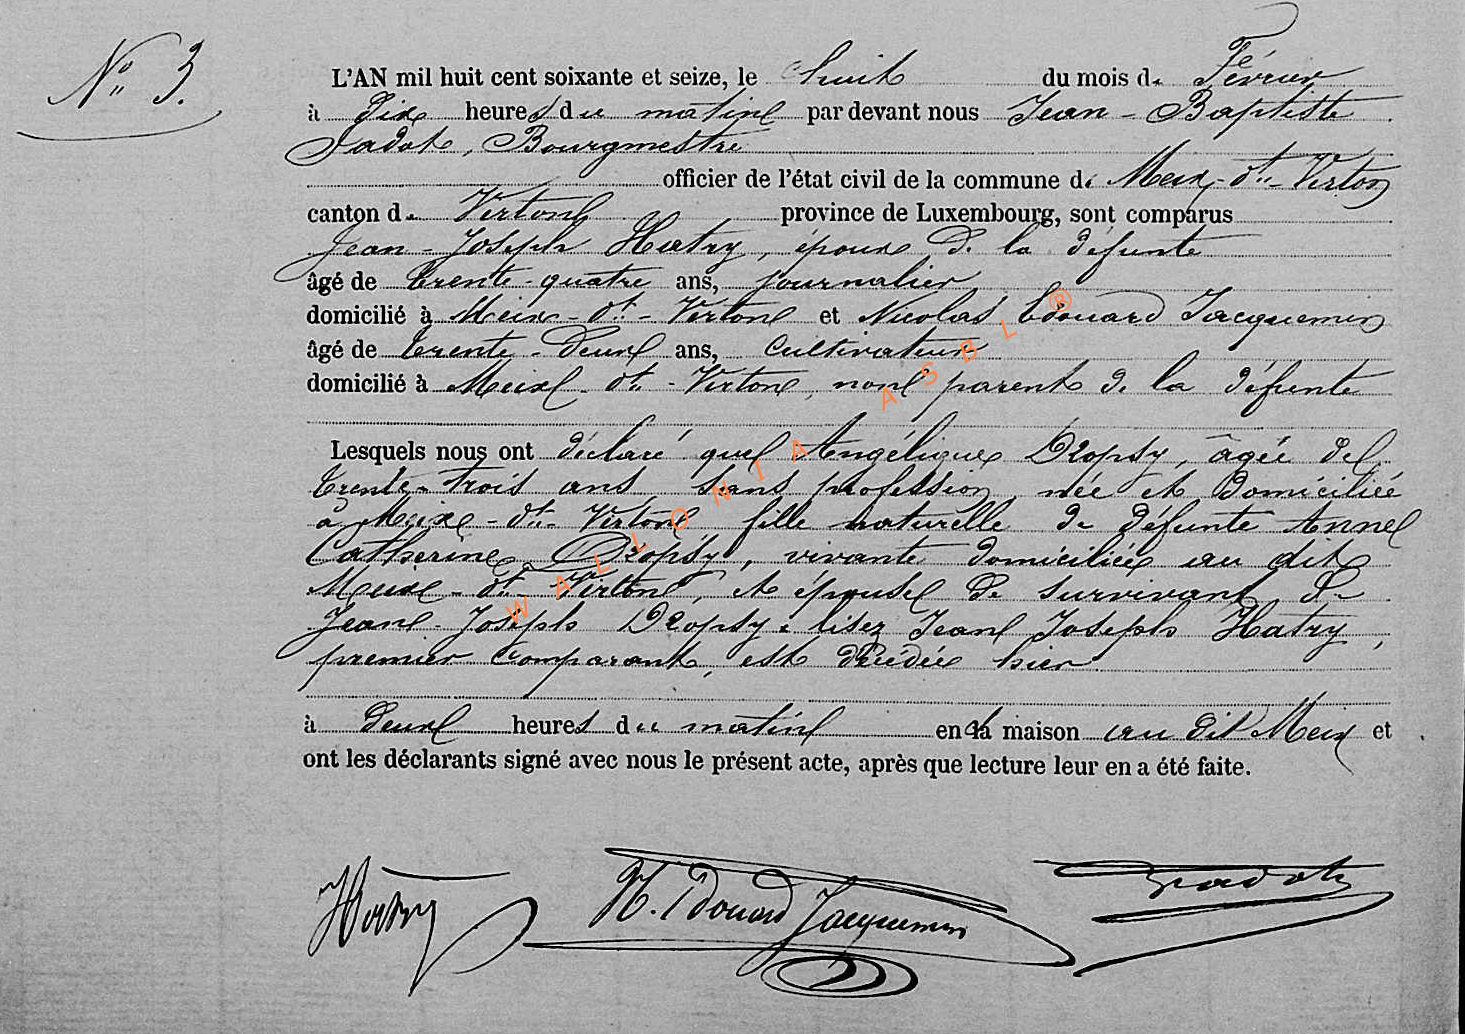 N° 3.
L'AN mil huit cent soixante et seize, le huit du mois de Février
à dix heures du matin par devant nous Jean-Baptiste
Jadot, Bourgmestre
officier de l'état civil de la commune de Meix-dt-Virton
canton de Virton province de Luxembourg, sont comparus
Jean-Joseph Hatry, époux de la défunte
âgé de trente-quatre ans, journalier
domicilié à Meix-dt-Virton et Nicolas Edouard Jacquemin
âgé de trente-deux ans, cultivateur
domicilié à Meix-dt-Virton, non parent de la défunte
Lesquels nous ont déclaré que Angélique Dropsy, âgée de
trente-trois ans, sans profession, née et domiciliée
à Meix-dt-Virton fille naturelle de défunte Anne
Catherine Dropsy, vivante domiciliée au dit
Meix-dt-Virton, et épouse de survivant de
Jean-Joseph Dropsy lisez Jean Joseph Hatry,
premier comparant, est décédée hier
à deux heures du matin en sa maison au dit Meix et
ont les déclarants signé avec nous le présent acte, après que lecture leur en a été faite.
Hatry N. Edouard Jacquemin Jadot
WALLONIA ASBL ®